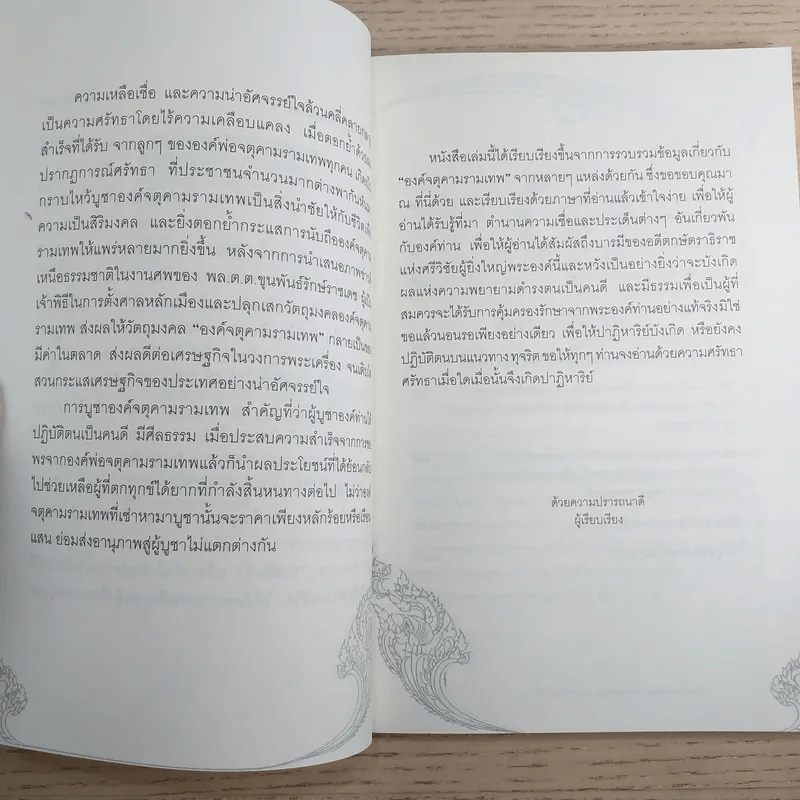 ความเหลือเชื่อ และความน่าอัศจรรย์ใจล้วนคลี่คลายกลาย
เป็นความศรัทธาโดยไร้ความเคลือบแคลง เมื่อตอกย้ำด้วย
สำเร็จที่ได้รับ จากลูกๆ ขององค์พ่อจตุคามรามเทพทุกคน เกิดเป็น
ปรากฏการณ์ศรัทธา ที่ประชาชนจำนวนมากต่างพากัน
กราบไหว้บูชาองค์จตุคามรามเทพเป็นสิ่งนำชัยให้กับชีวิต
ความเป็นสิริมงคล และยิ่งตอกย้ำกระแสการนับถือองค์จตุคาม
รามเทพให้แพร่หลายมากยิ่งขึ้น หลังจากการนำเสนอภาพ
เหนือธรรมชาติในงานศพของ พล.ต.ต.ขุนพันธ์รักษ์ราชเดช ผู้
เจ้าพิธีในการตั้งศาลหลักเมืองและปลุกเสกวัตถุมงคลองค์จตุคาม
รามเทพ ส่งผลให้วัตถุมงคล “องค์จตุคามรามเทพ” กลายเป็นของ
มีค่าในตลาด ส่งผลดีต่อเศรษฐกิจในวงการพระเครื่อง จนเติบโต
สวนกระแสเศรษฐกิจของประเทศอย่างน่าอัศจรรย์ใจ
การบูชาองค์จตุคามรามเทพ สำคัญที่ว่าผู้บูชาองค์ท่านได้
ปฏิบัติตนเป็นคนดี มีศีลธรรม เมื่อประสบความสำเร็จจากการขอ
พรจากองค์พ่อจตุคามรามเทพแล้วก็นำผลประโยชน์ที่ได้ย้อนกลับ
ไปช่วยเหลือผู้ที่ตกทุกข์ได้ยากที่กำลังสิ้นหนทางต่อไป ไม่ว่าองค์
จตุคามรามเทพที่เช่าหามาบูชานั้นจะราคาเพียงหลักร้อยหรือเรือน
แสน ย่อมส่งอานุภาพสู่ผู้บูชาไม่แตกต่างกัน
หนังสือเล่มนี้ได้เรียบเรียงขึ้นจากการรวบรวมข้อมูลเกี่ยวกับ
“องค์จตุคามรามเทพ” จากหลายๆ แหล่งด้วยกัน ซึ่งขอขอบคุณมา
ณ ที่นี้ด้วย และเรียบเรียงด้วยภาษาที่อ่านแล้วเข้าใจง่าย เพื่อให้ผู้
อ่านได้รับรู้ที่มา ตำนานความเชื่อและประเด็นต่างๆ อันเกี่ยวพัน
กับองค์ท่าน เพื่อให้ผู้อ่านได้สัมผัสถึงบารมีของอดีตกษัตราธิราช
แห่งศรีวิชัยผู้ยิ่งใหญ่พระองค์นี้และหวังเป็นอย่างยิ่งว่าจะบังเกิด
ผลแห่งความพยายามดำรงตนเป็นคนดี และมีธรรมเพื่อเป็นผู้ที่
สมควรจะได้รับการคุ้มครองรักษาจากพระองค์ท่านอย่างแท้จริงมิใช่
ขอแล้วนอนรอเพียงอย่างเดียว เพื่อให้ปาฏิหาริย์บังเกิด หรือยังคง
ปฏิบัติตนบนแนวทาง ทุจริต ขอให้ทุกๆ ท่านจงอ่านด้วยความศรัทธา
ศรัทธาเมื่อใดเมื่อนั้นจึงเกิดปาฏิหาริย์
ด้วยความปรารถนาดี
ผู้เรียบเรียง